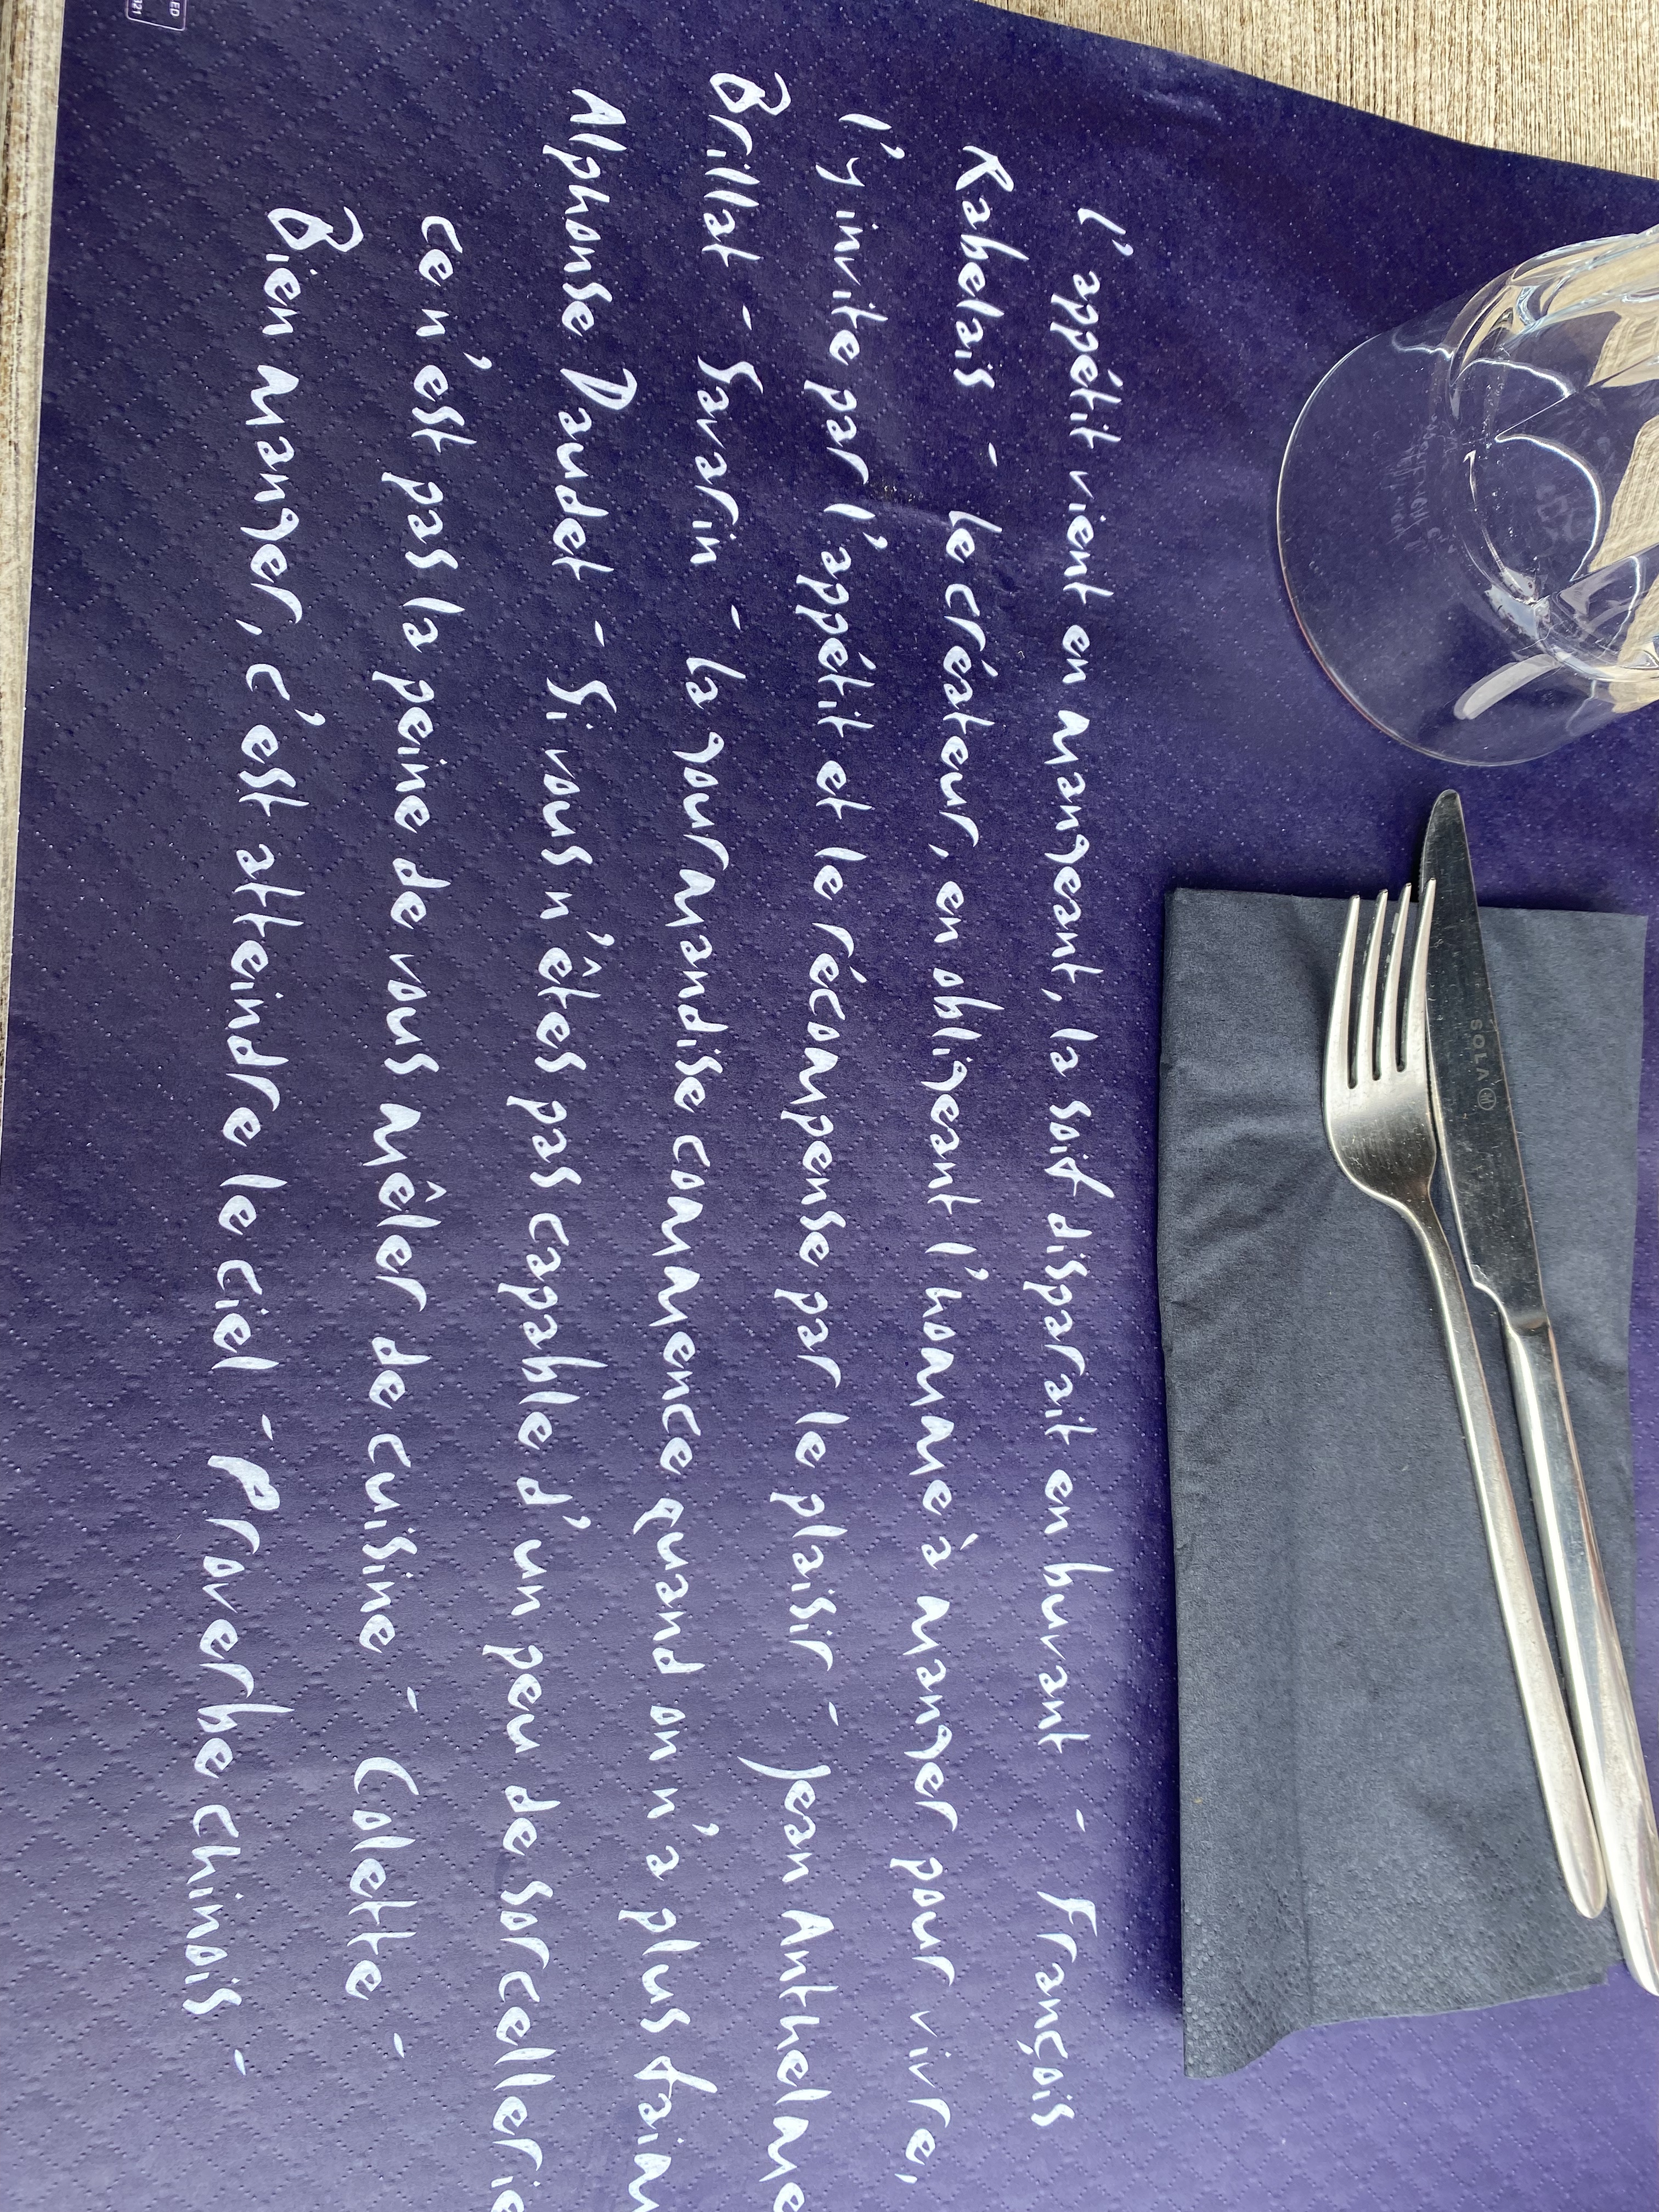 L'appétit vient en mangeant, la soif disparait en buvant - François
Rabelais - Le créateur, en obligeant l'homme à manger pour vivre,
l'y invite par l'appétit et le récompense par le plaisir - Jean Anthelme
Brillat - Savarin - La gourmandise commence quand on n'a plus faim
Alphonse Daudet - Si vous n'êtes pas capable d'un peu de sorcellerie
ce n'est pas la peine de vous mêler de cuisine - Colette -
Bien manger, c'est atteindre le ciel - Proverbe chinois -
SOLA